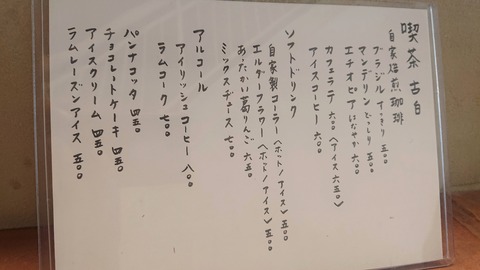 喫茶 古白
自家焙煎珈琲
ブラジル すっきり 五〇〇
マンデリン どっしり 五〇〇
エチオピア はなやか 六〇〇
カフェラテ 六〇〇〈アイス六五〇〉
アイスコーヒー 六〇〇
ソフトドリンク
自家製コーラ〈ホット/アイス〉五〇〇
エルダーフラワー〈ホット/アイス〉五〇〇
あったかい葛りんご 六五〇
ミックスジュース 七〇〇
アルコール
アイリッシュコーヒー 八〇〇
ラムコーク 七〇〇
パンナコッタ 四五〇
チョコレートケーキ 四五〇
アイスクリーム 四五〇
ラムレーズンアイス 五〇〇